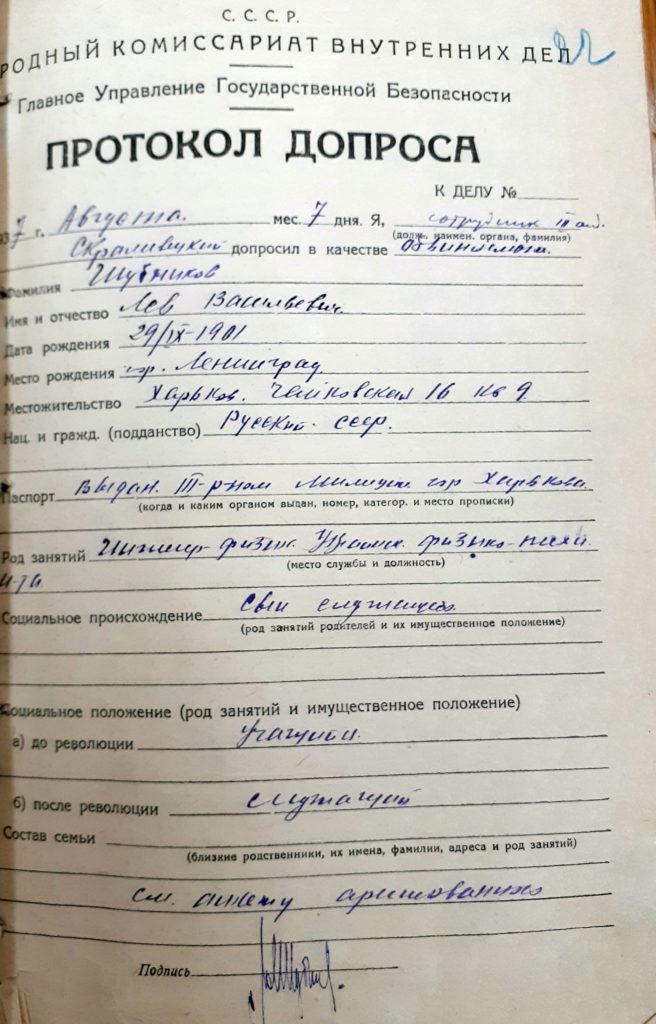 С. С. С. Р.
РОДНЫЙ КОМИССАРИАТ ВНУТРЕННИХ ДЕЛ
Главное Управление Государственной Безопасности
ПРОТОКОЛ ДОПРОСА
К ДЕЛУ №
1937 г. Августа мес. 7 дня. Я, сотрудник III отд.
(долж. наимен. органа, фамилия)
Скраливецкий допросил в качестве обвиняемого
Фамилия Шубников
Имя и отчество Лев Васильевич
Дата рождения 29/IX-1901
Место рождения гор. Ленинград
Местожительство Харьков. Чайковская 16 кв 9
Нац. и гражд. (подданство) Русский. ссср.
Паспорт Выдан. III-р-ном Милиции гор Харькова
(когда и каким органом выдан, номер, категор. и место прописки)
Род занятий Инженер-физик физико-техн.
(место службы и должность)
и-та
Социальное происхождение Сын служащего
(род занятий родителей и их имущественное положение)
Социальное положение (род занятий и имущественное положение)
а) до революции Учащийся
б) после революции служащий
Состав семьи
(близкие родственники, их имена, фамилии, адреса и род занятий)
см. анкету арестованного
Подпись